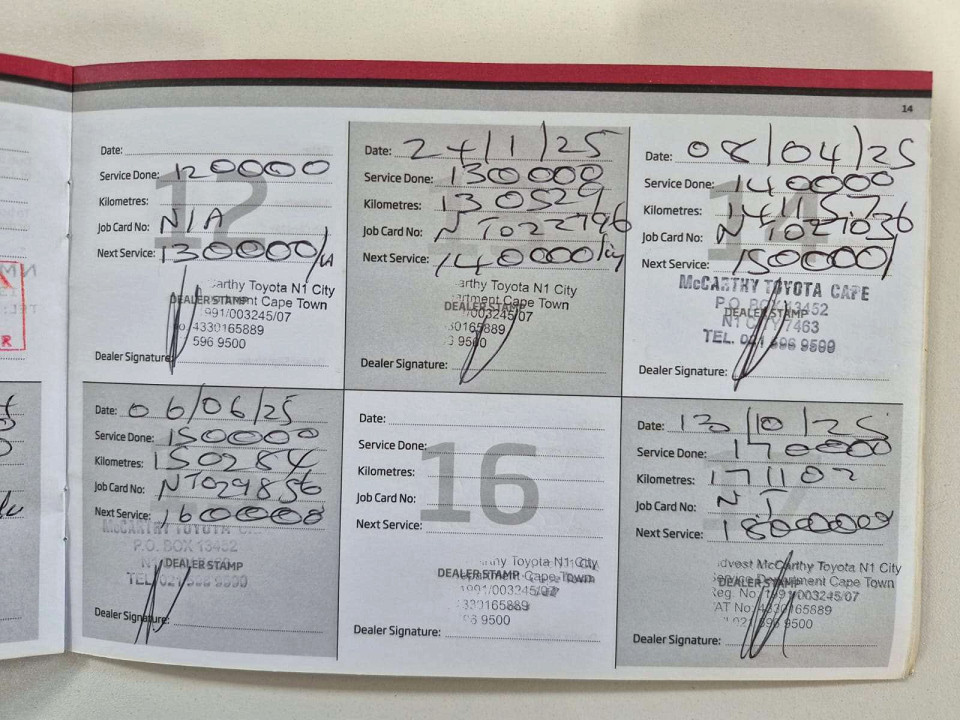 14
12
Date:
Service Done: 120000
Kilometres:
Job Card No: N/A
Next Service: 130000/
arthy Toyota N1 City
DEALER STAMP
rtment Cape Town
1991/003245/07
4330165889
596 9500
Dealer Signature:
Date: 24/1/25
Service Done: 130000
Kilometres: 130529
Job Card No: NT022796
Next Service: 140000/
arthy Toyota N1 City
rtment Cape Town
DEALER STAMP
/003245/07
30165889
3 9500
Dealer Signature:
14
Date: 08/04/25
Service Done: 140000
Kilometres: 141157
Job Card No: NT027036
Next Service: 150000/
McCARTHY TOYOTA CAPE
P.O. BOX 13452
DEALER STAMP
N1 CITY 7463
TEL. 021 596 9500
Dealer Signature:
Date: 06/06/25
Service Done: 150000
Kilometres: 150284
Job Card No: NT029856
Next Service: 160000
McCARTHY TOYOTA CA
P.O. BOX 13452
DEALER STAMP
TEL. 021 596 9500
Dealer Signature:
16
Date:
Service Done:
Kilometres:
Job Card No:
Next Service:
Toyota N1 City
DEALER STAMP
Cape Town
1991/003245/07
330165889
9500
Dealer Signature:
Date: 13/10/25
Service Done: 170000
Kilometres: 171102
Job Card No: NT
Next Service: 18000000
dvest McCarthy Toyota N1 City
Service Department Cape Town
DEALER STAMP
Reg. No: 1991/003245/07
VAT No: 4330165889
Dealer Signature: